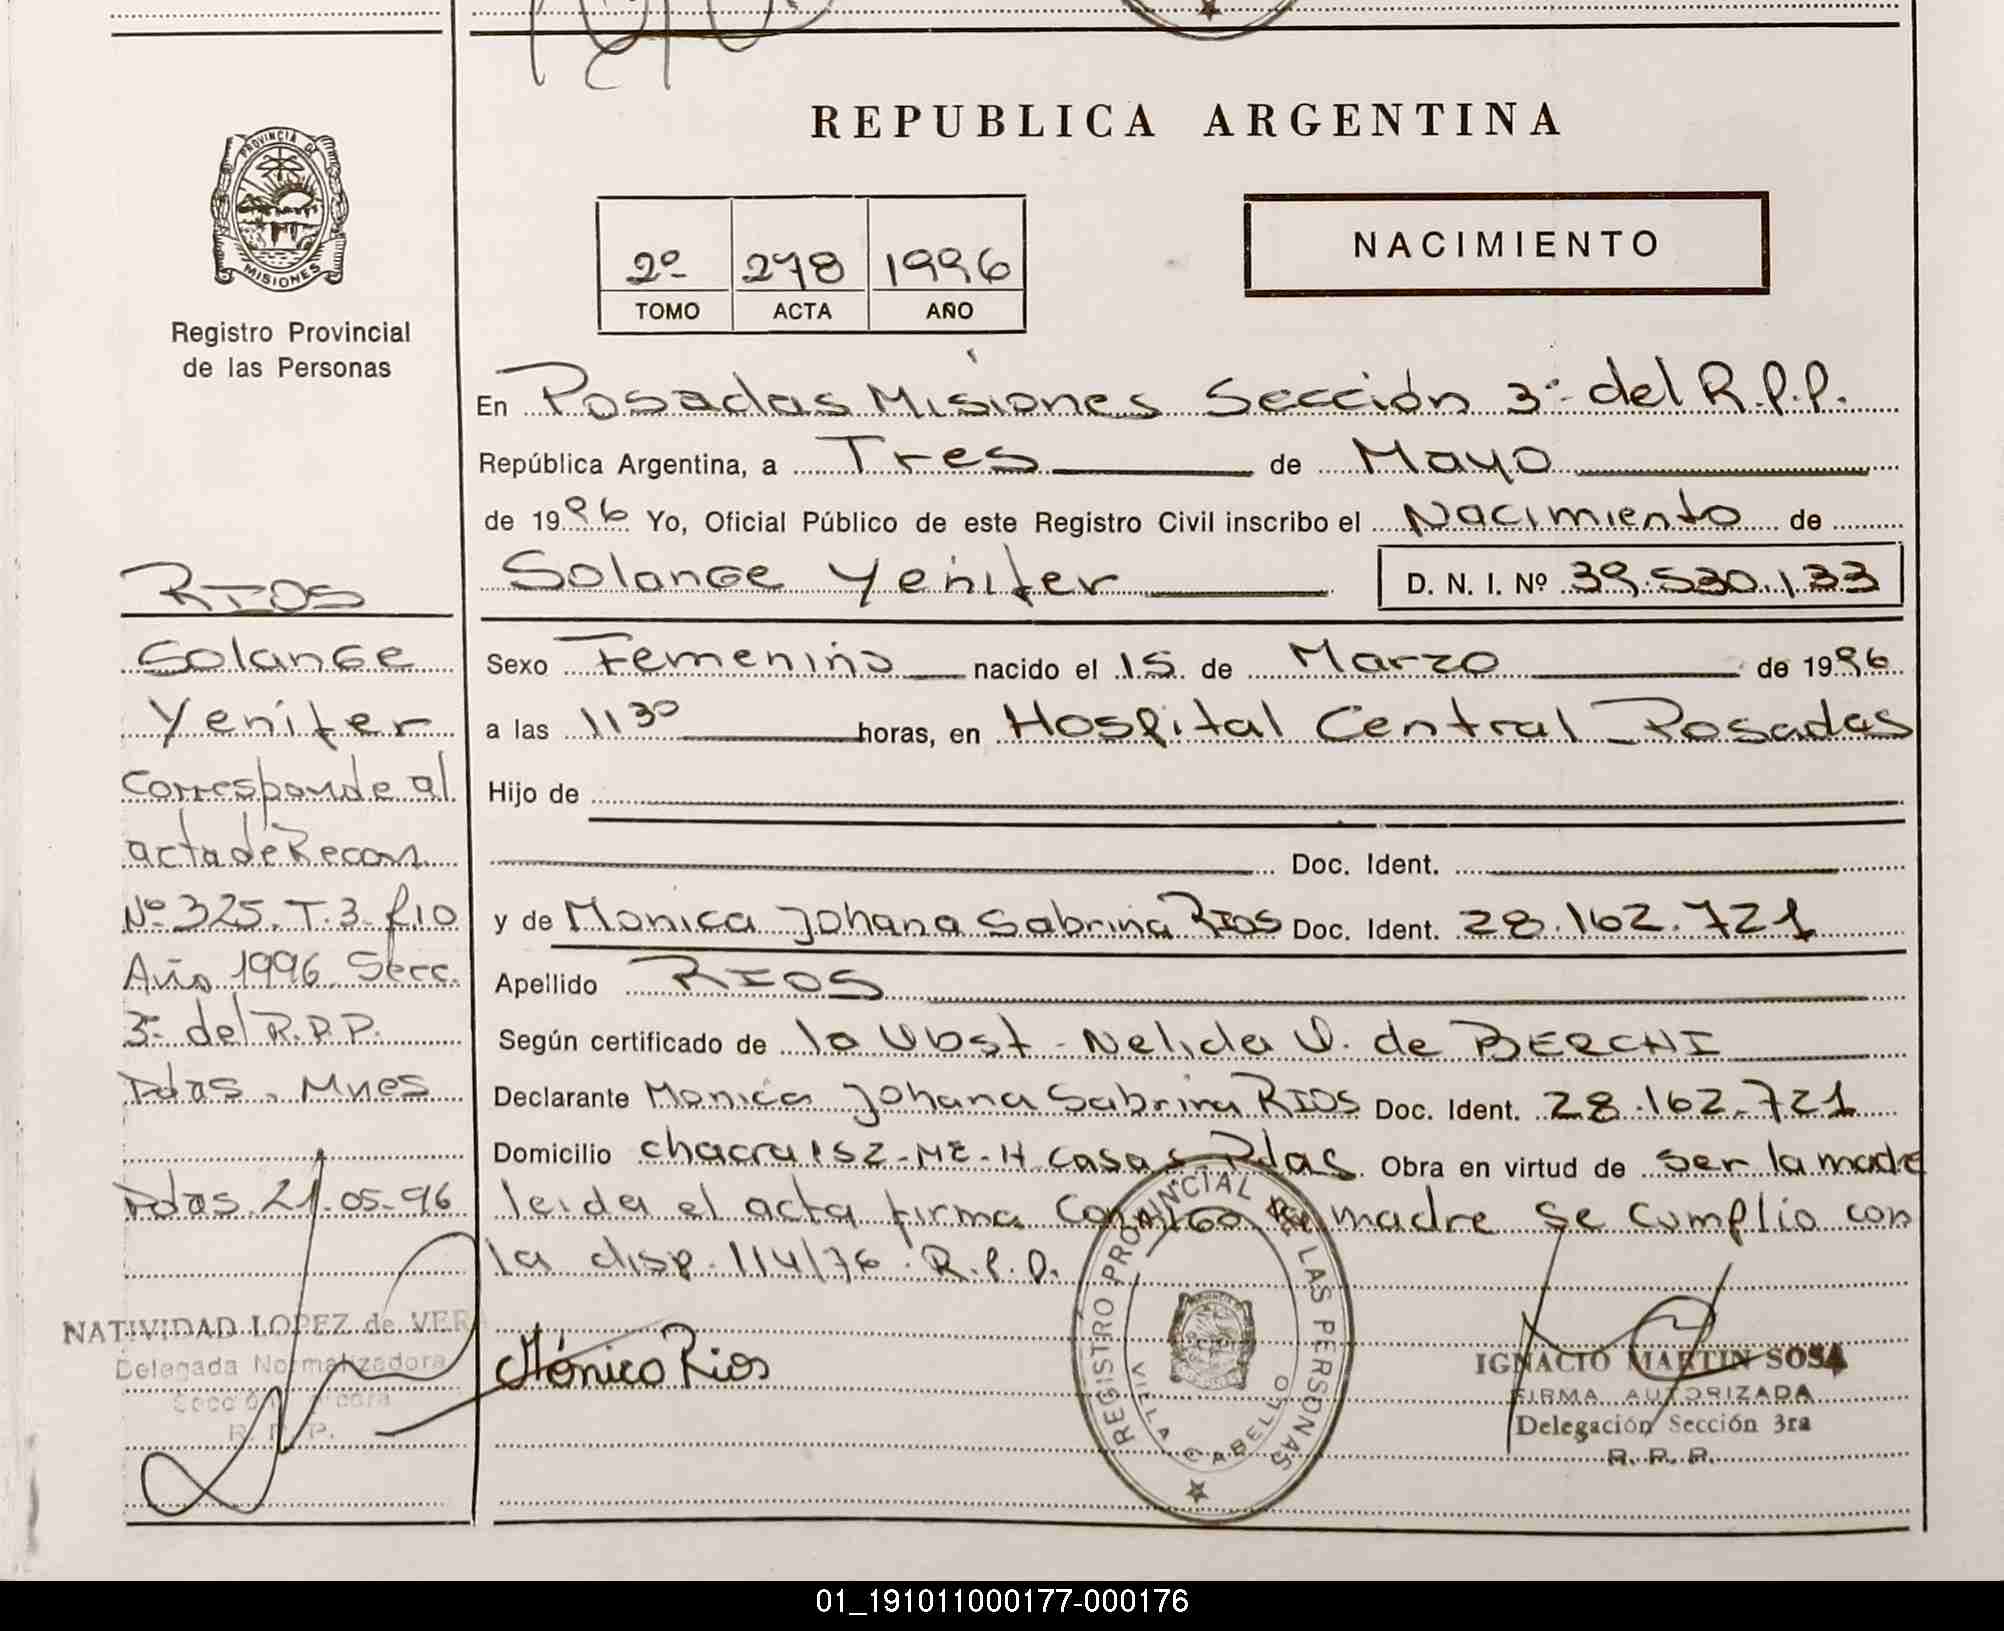 REPUBLICA ARGENTINA
PROVINCIA DE
MISIONES
Registro Provincial
de las Personas
2º 278 1996
TOMO ACTA AÑO
NACIMIENTO
En Posadas Misiones Sección 3ª del R.P.P.
República Argentina, a Tres de Mayo
de 1996 Yo, Oficial Público de este Registro Civil inscribo el Nacimiento de
Solange Yenifer D. N. I. Nº 39.530.133
Sexo Femenino nacido el 15 de Marzo de 1996
a las 11 30 horas, en Hospital Central Posadas
Hijo de
Doc. Ident.
y de Monica Johana Sabrina RIOS Doc. Ident. 28.162.721
Apellido RIOS
Según certificado de la Obst. Nelida V. de BERCHI
Declarante Monica Johana Sabrina RIOS Doc. Ident. 28.162.721
Domicilio chacra 152-ME-H casa Pdas. Obra en virtud de ser la madre
leida el acta firma conmigo la madre se cumplio con
la disp. 114/76 R.P.P.
Mónica Rios
REGISTRO PROVINCIAL DE LAS PERSONAS
VILLA CABELLO
IGNACIO MARTIN SOSA
FIRMA AUTORIZADA
Delegación Sección 3ra
R. P. P.
RIOS
Solange
Yenifer
Corresponde al
acta de Recon.
Nº 325. T.3. f.10
Año 1996. Secc.
3ª del R.P.P.
Pdas. Mnes
Pdas. 21.05.96
NATIVIDAD LOPEZ de VERA
Delegada Normalizadora
Sección
R. P. P.
01_191011000177-000176